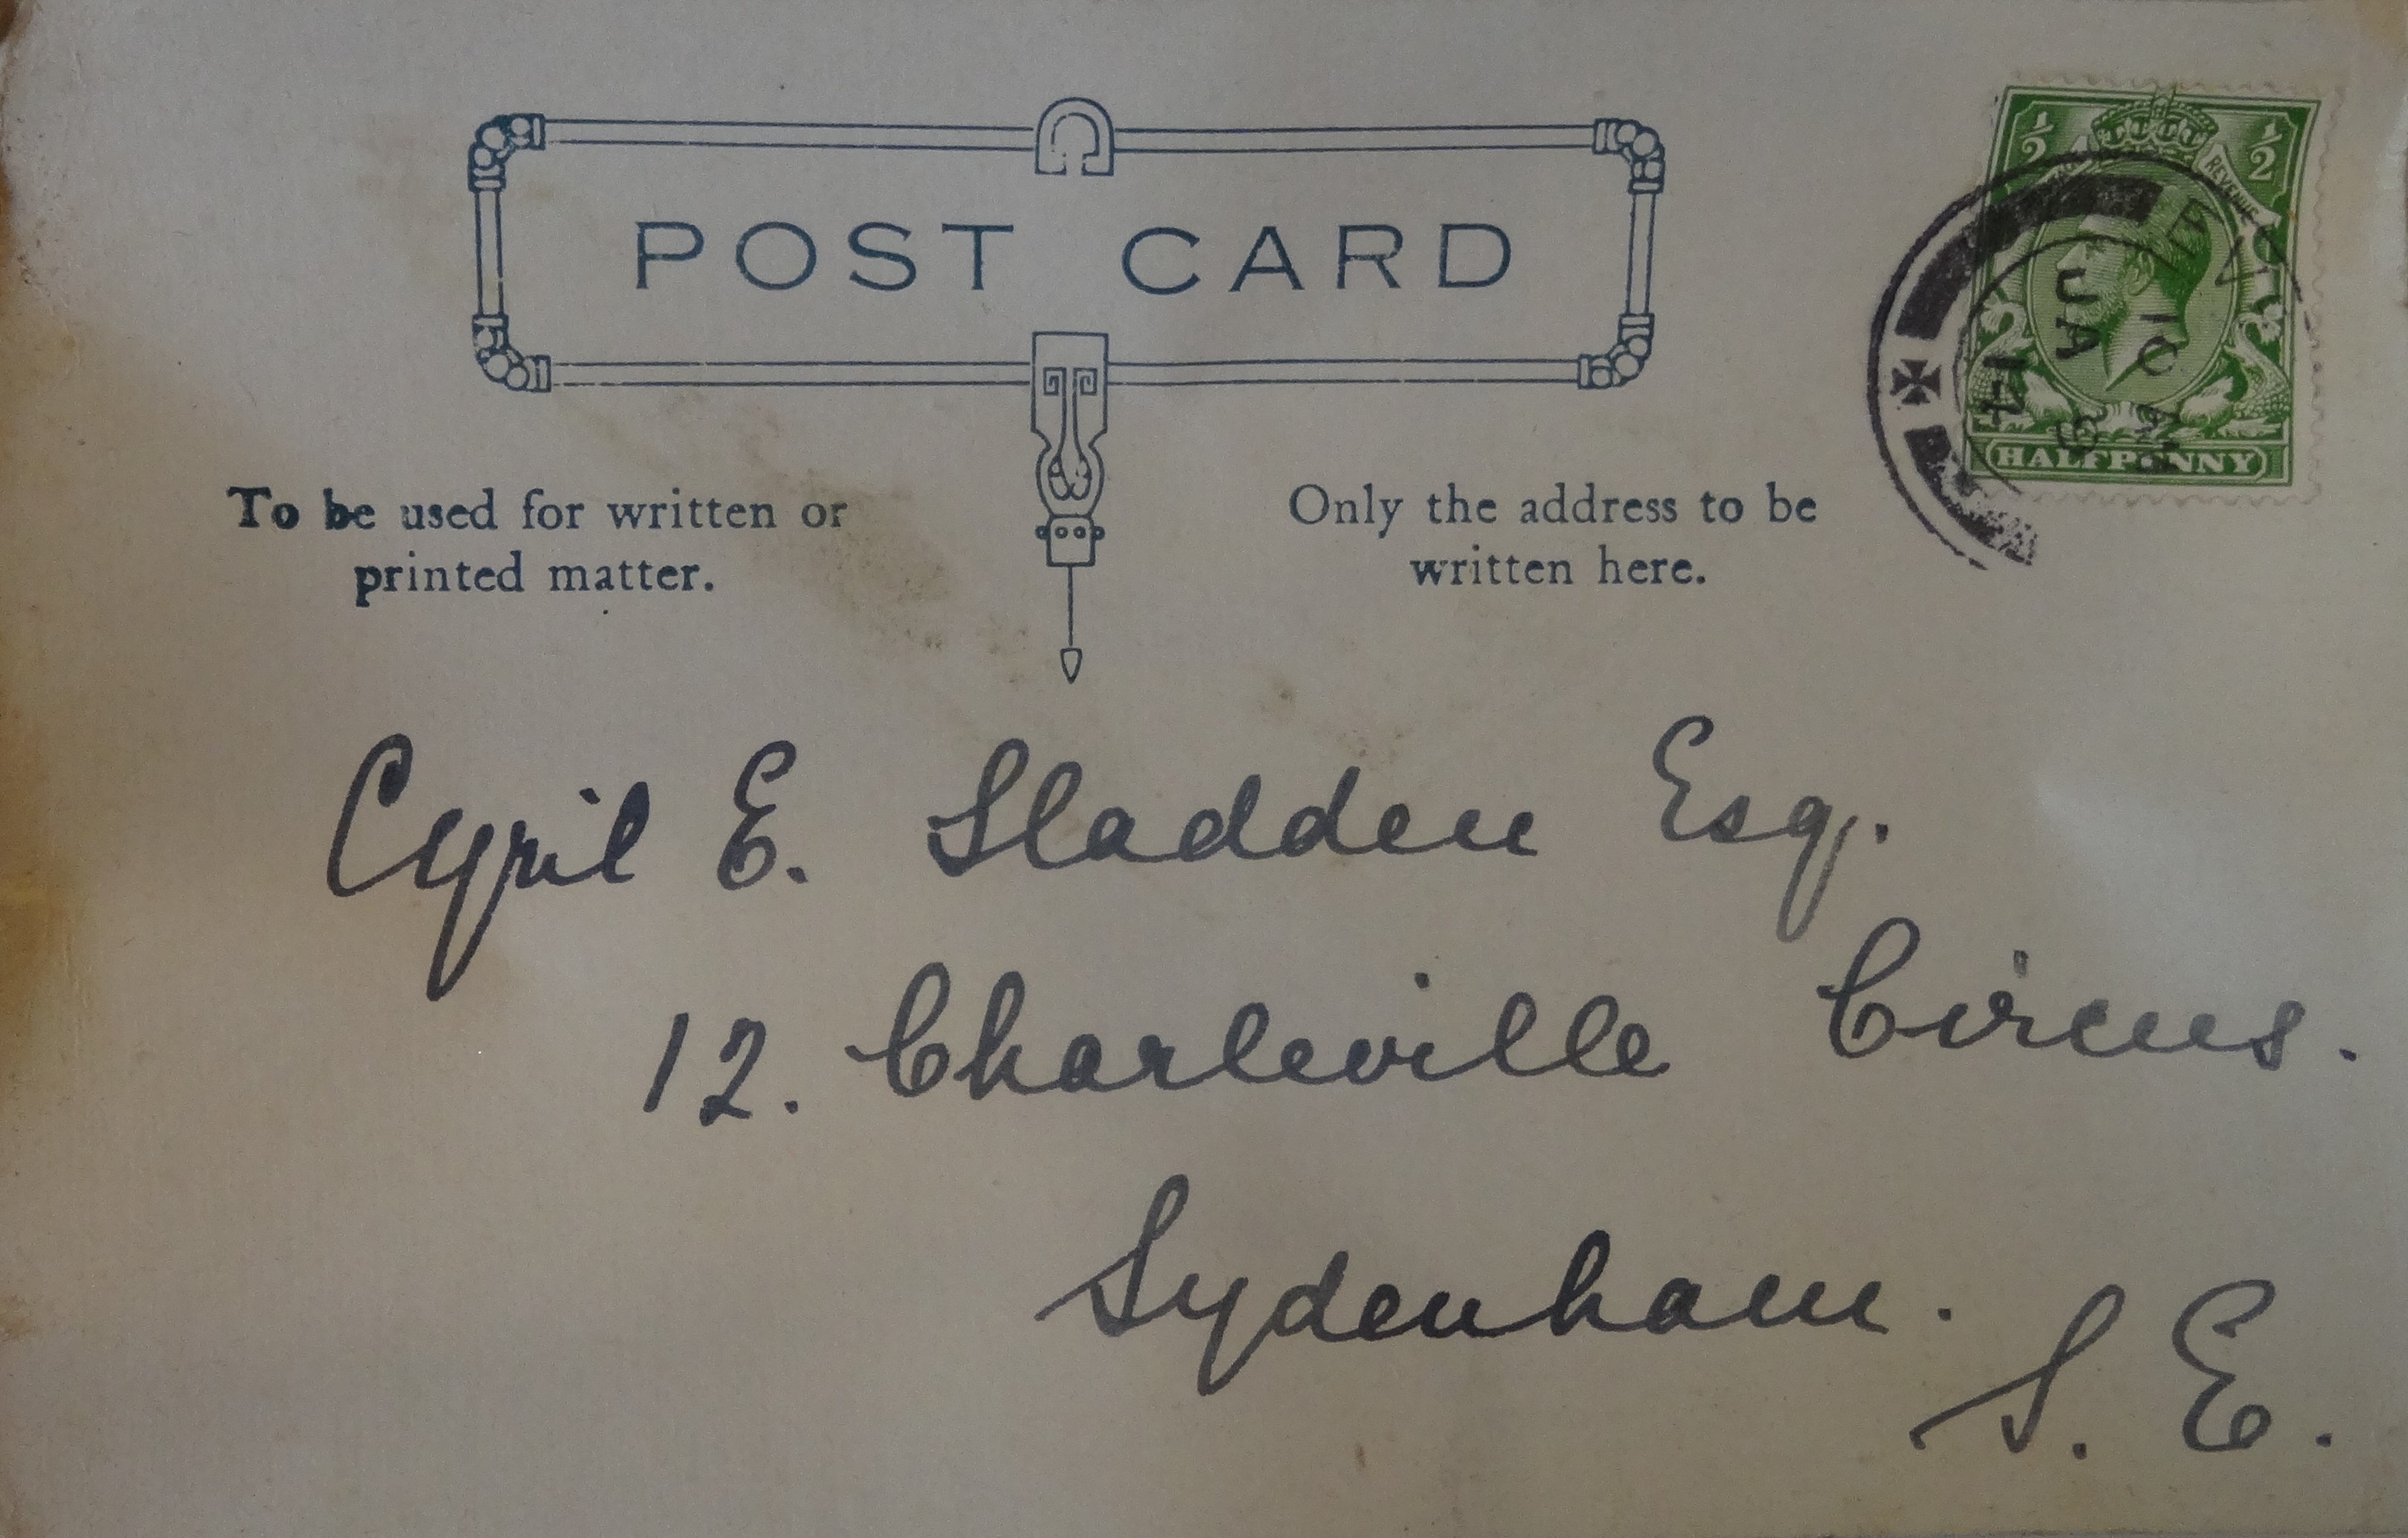 POST CARD
To be used for written or
printed matter.
Only the address to be
written here.
½ ½
REVENUE
HALFPENNY
EV
JA 9
14
Cyril E. Sladden Esq.
12. Charleville Circus.
Sydenham.
S. E.